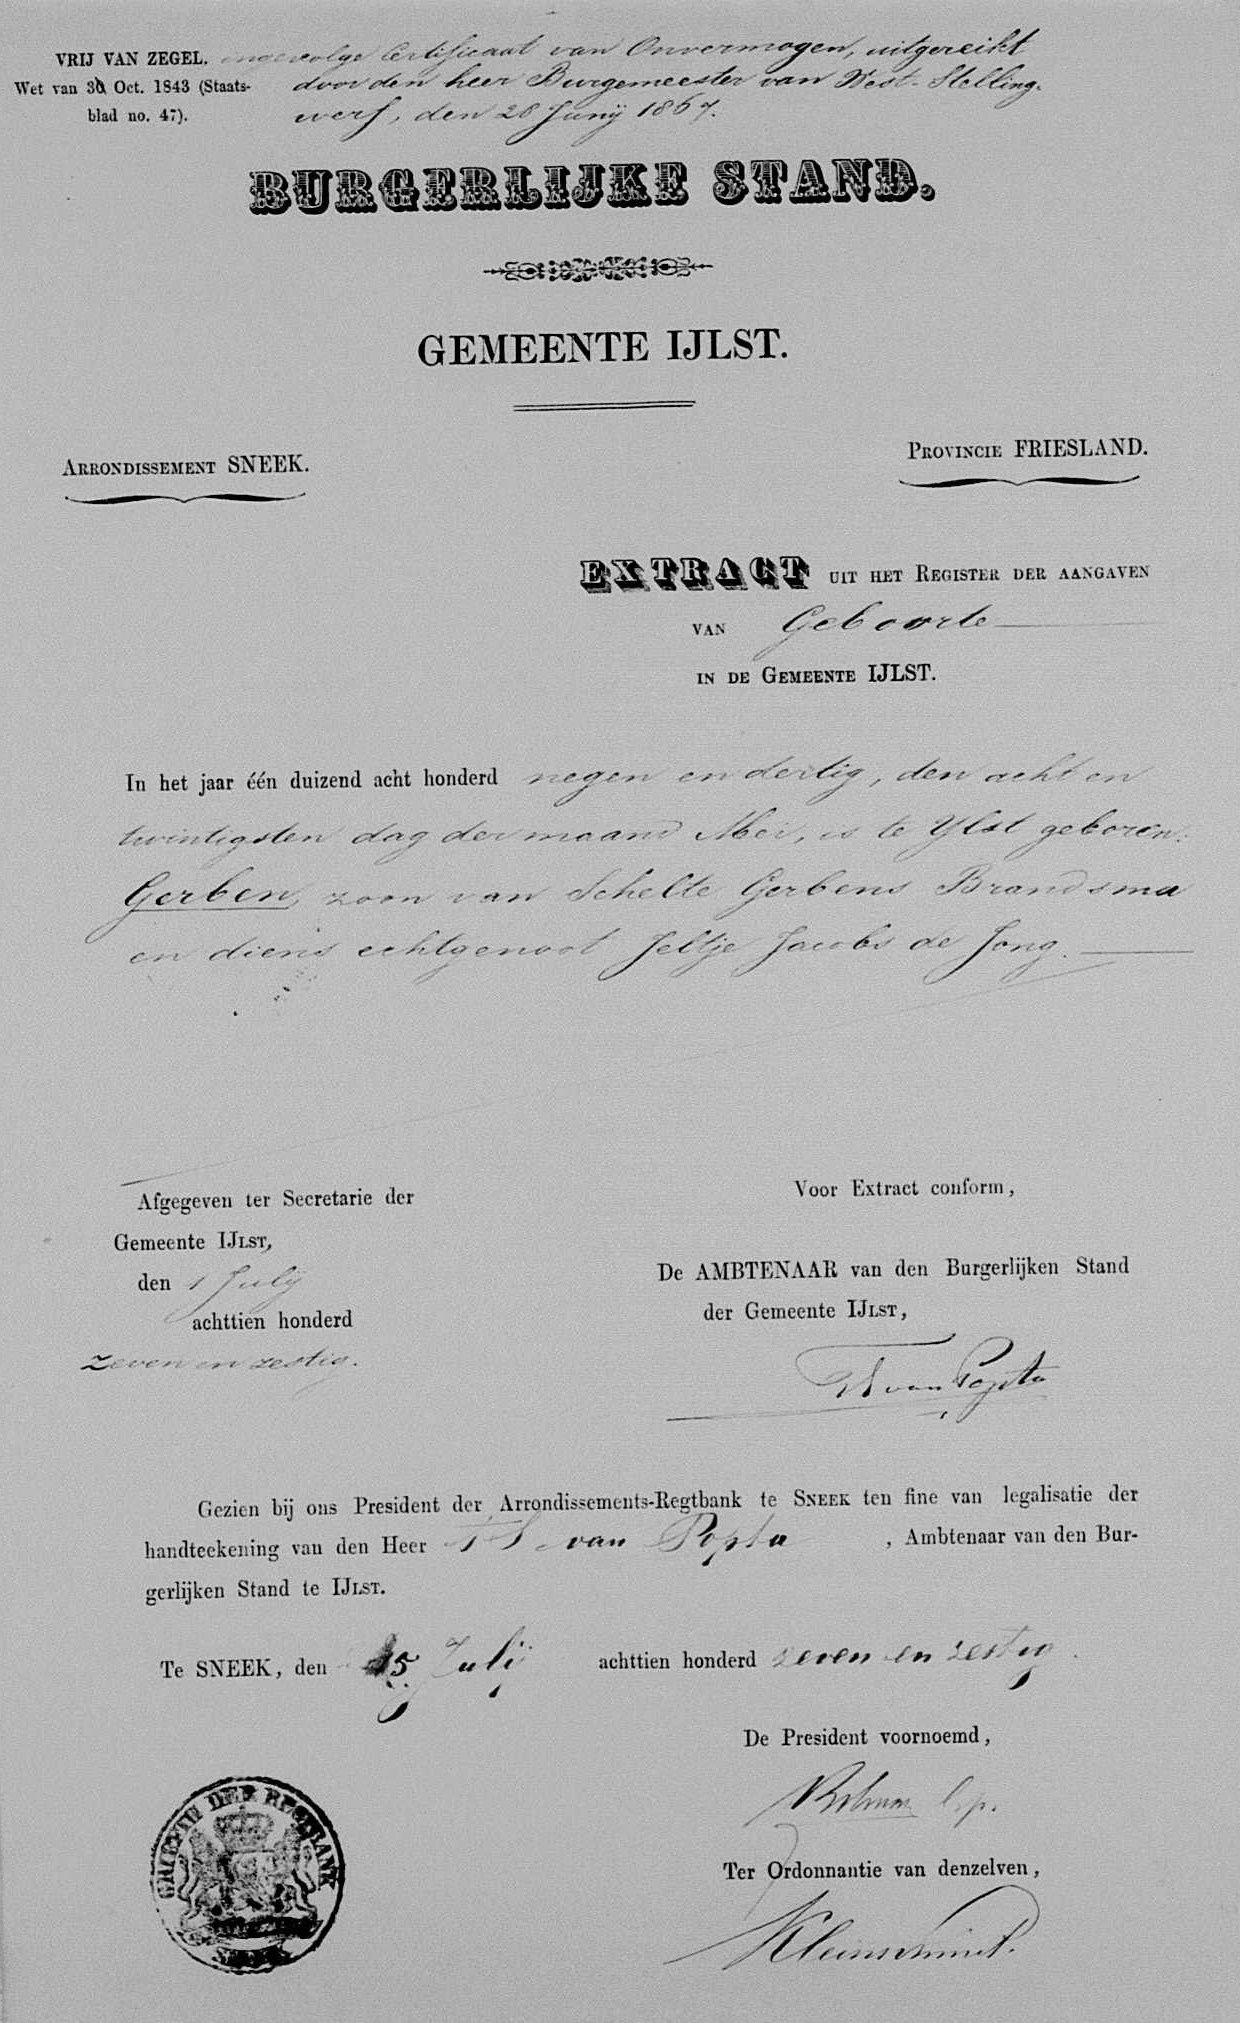 VRIJ VAN ZEGEL. ingevolge Certificaat van Onvermogen, uitgereikt
Wet van 3 Oct. 1843 (Staats- door den heer Burgemeester van West-Stelling-
blad no. 47). werf, den 28 Junij 1867.
BURGERLIJKE STAND.
GEMEENTE IJLST.
ARRONDISSEMENT SNEEK. PROVINCIE FRIESLAND.
EXTRACT UIT HET REGISTER DER AANGAVEN
VAN Geboorte
IN DE GEMEENTE IJLST.
In het jaar één duizend acht honderd negen en dertig, den acht en
twintigsten dag der maand Mei, is te Ylst geboren:
Gerben, zoon van Schelte Gerbens Brandsma
en diens echtgenoot Jeltje Jacobs de Jong.
Afgegeven ter Secretarie der
Gemeente IJLST,
den 1 July
achttien honderd
zeven en zestig.
Voor Extract conform,
De AMBTENAAR van den Burgerlijken Stand
der Gemeente IJLST,
van Popta
Gezien bij ons President der Arrondissements-Regtbank te SNEEK ten fine van legalisatie der
handteekening van den Heer van Popta , Ambtenaar van den Bur-
gerlijken Stand te IJLST.
Te SNEEK, den 15 Julij achttien honderd zeven en zestig.
De President voornoemd,
Ter Ordonnantie van denzelven,
GRIFFIE DER REGTBANK
SNEEK